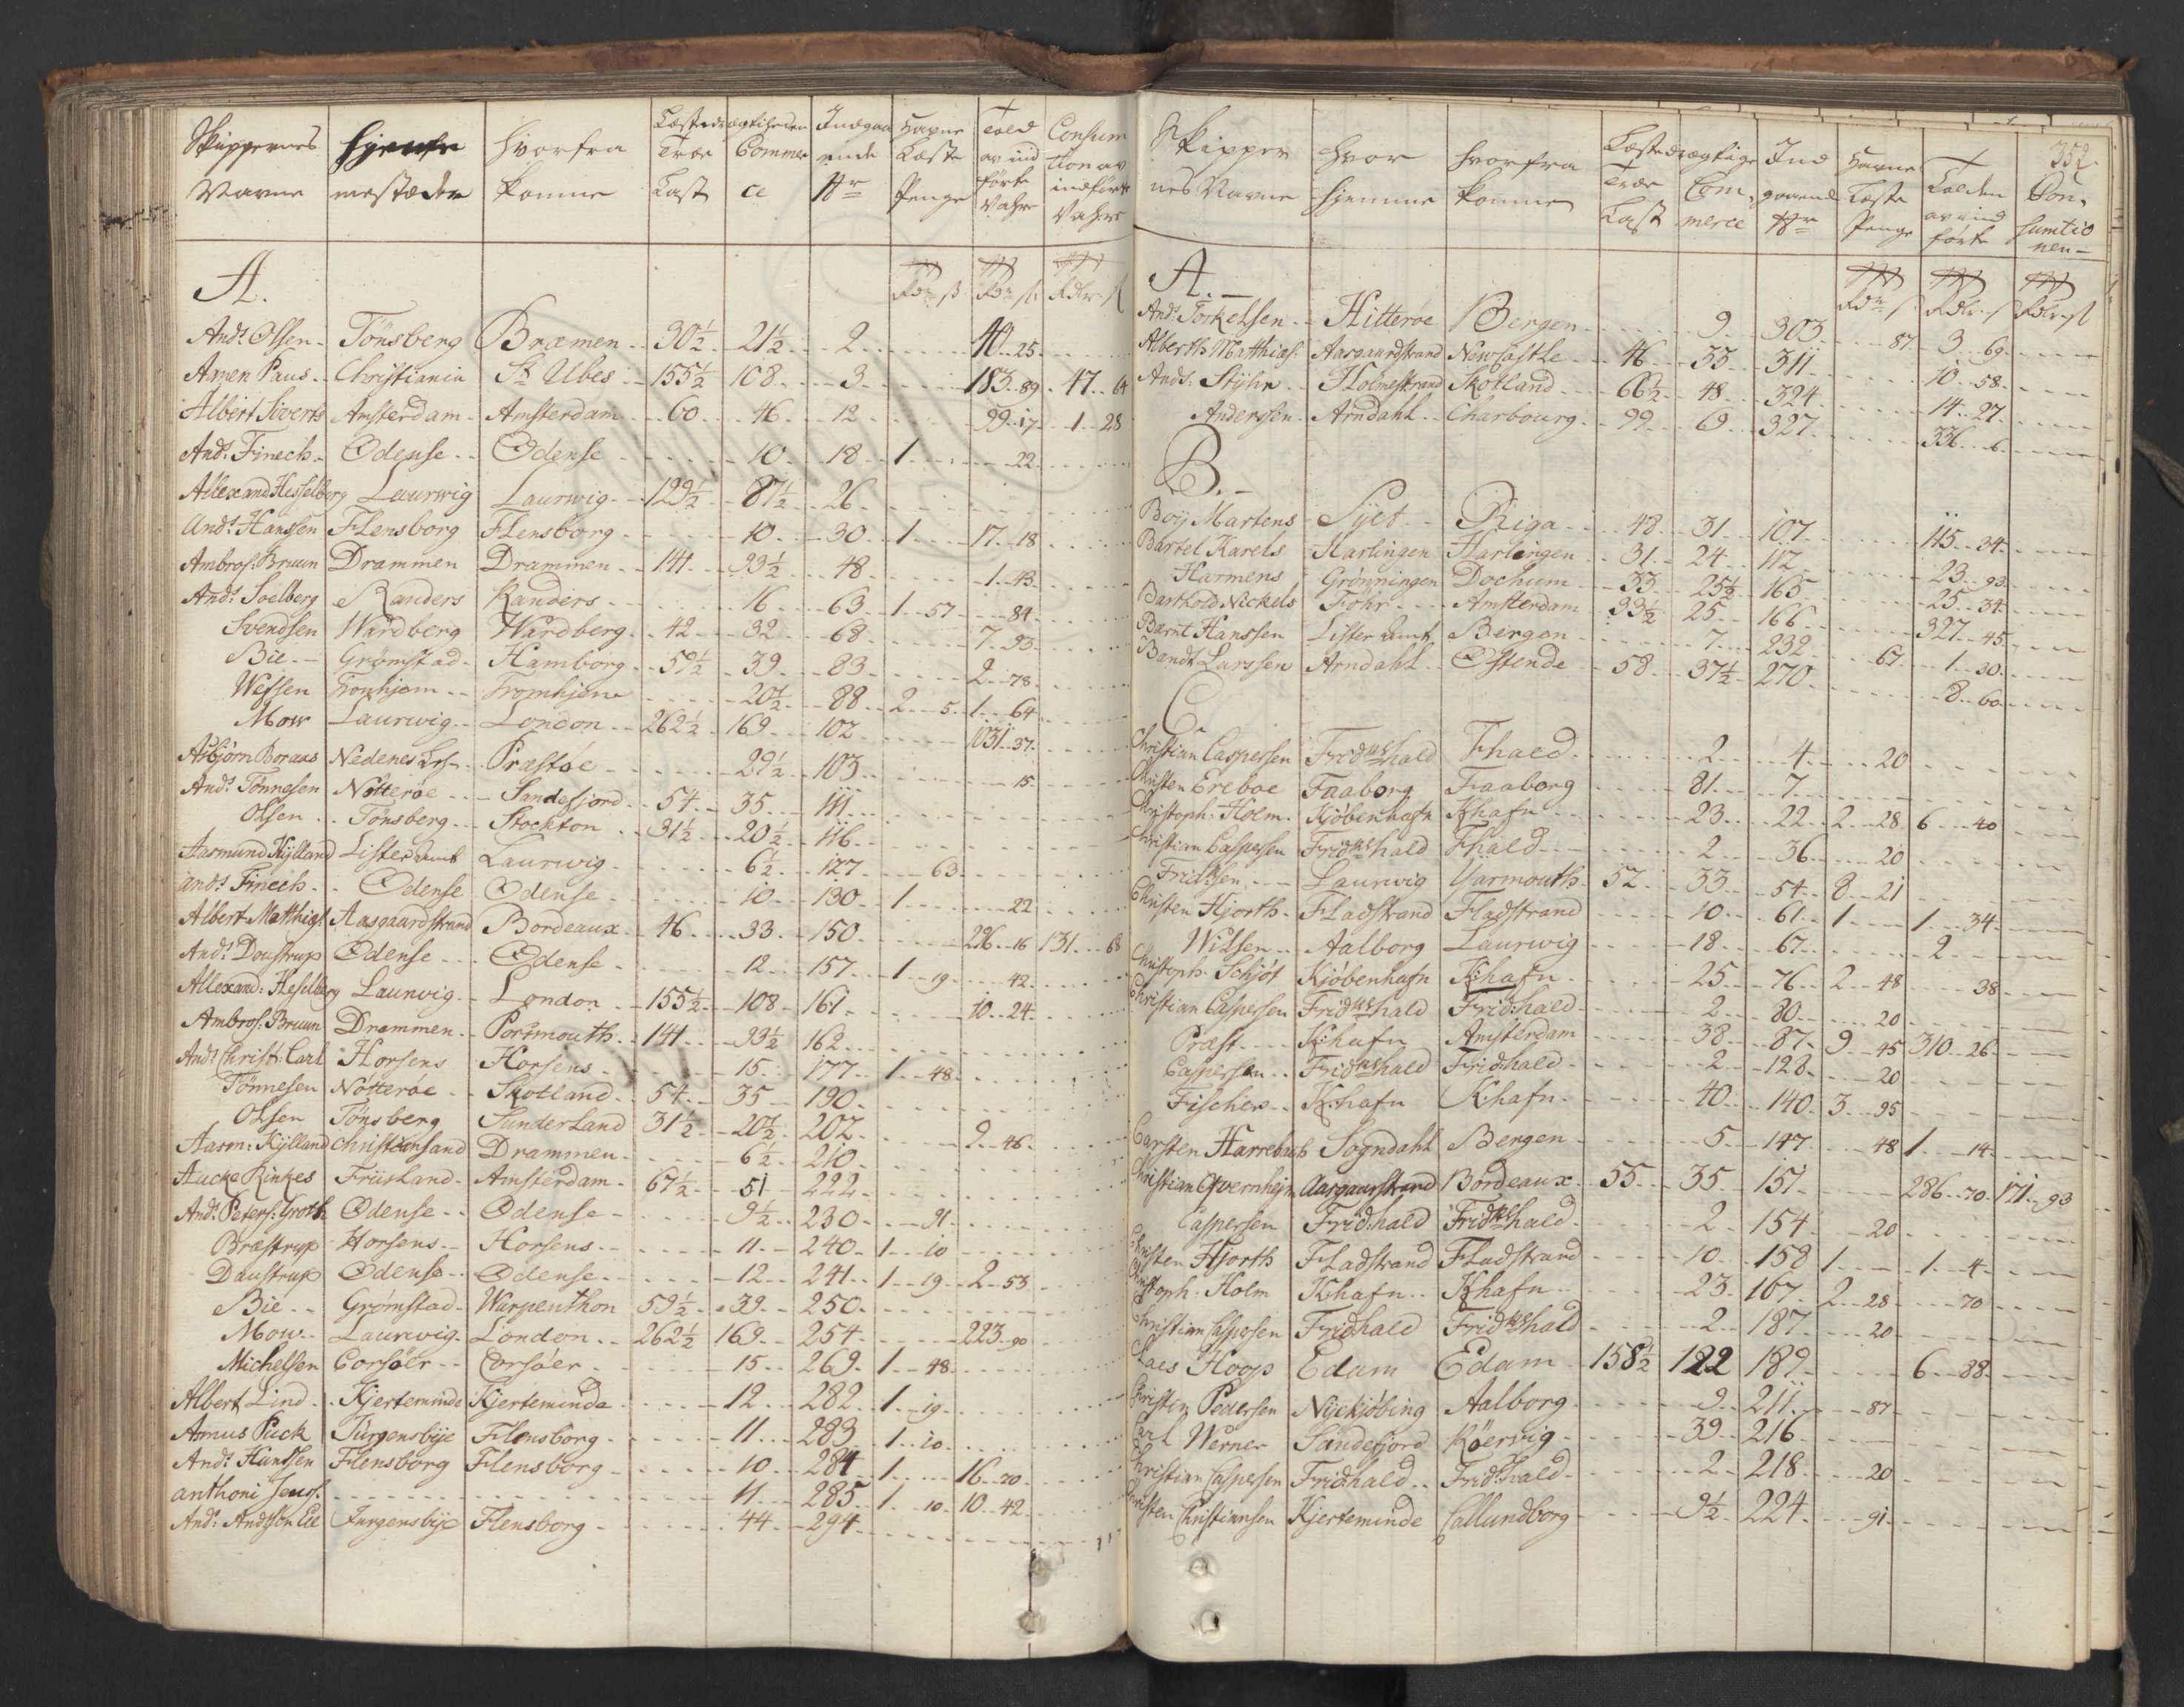 Skippernes Navne | hjemmestæder | hvorfra komme | Læstedrægtigheden Træ Last | Commerce | Indgaaende Nr | Havne Læste Penge | Told av indførte Vahre | Consumtion av indførte Vahre
A.
Rdr ß | Rdr ß | Rdlr ß
Ands Olsen | Tönsberg | Bræmen | 30½ | 21½ | 2 | | 40 25
Amen Paus | Christiania | St Ubes | 155½ | 108 | 3 | | 183 89 | 47 64
Albert Siverts | Amsterdam | Amsterdam | 60 | 46 | 12 | | 99 17 | 1 28
Ands Finech | Odense | Odense | | 10 | 18 | 1 | 22
Allexand Hesselberg | Laurwig | Laurwig | 129½ | 87½ | 26
Ands Hanssen | Flensborg | Flensborg | | 10 | 30 | 1 | 17 18
Ambros. Bruun | Drammen | Drammen | 141 | 93½ | 48 | | 1 43
Ands Soelberg | Randers | Randers | | 16 | 63 | 1 57 | 84
Svendsen | Wardberg | Wardberg | 42 | 32 | 68 | | 7 93
Bie | Grømstad | Hamborg | 59½ | 39 | 83 | | 2 78
Wessen | Tronhjem | Tromhjem | | 20½ | 88 | 2 5 | 1 64
Mow | Laurwig | London | 262½ | 169 | 102 | | 1031 37
Asbjörn Boraas | Nedenes | Præstøe | | 29½ | 103 | | 15
Ands Tönnesen | Nötterøe | Sandefjord | 54 | 35 | 111
Olsen | Tönsberg | Stockton | 31½ | 20½ | 116
Aasmund Kylland | Lister Amt | Laurwig | | 6½ | 127 | 63
Ands Finech | Odense | Odense | | 10 | 130 | 1 | 22
Albert Matthias | Aasgaardstrand | Bordeaux | 46 | 33 | 150 | | 226 16 | 131 68
Ands Doustrup | Odense | Odense | | 12 | 157 | 1 19 | 42
Allexand: Heselberg | Laurwig | London | 155½ | 108 | 161 | | 10 24
Ambros. Bruun | Drammen | Portsmouth | 141 | 93½ | 162
Ands Christ: Carl | Horsens | Horsens | | 15 | 177 | 1 48
Tönnesen | Nötterøe | Skotland | 54 | 35 | 190
Olsen | Tönsberg | Sunderland | 31½ | 20½ | 202 | | 2 46
Aasm: Kylland | Christiansand | Drammen | | 6½ | 210
Aucke Rinkes | Friisland | Amsterdam | 67½ | 51 | 222
Ands Peters: Groth | Odense | Odense | | 9½ | 230 | 91
Bræstrup | Horsens | Horsens | | 11 | 240 | 1 10
Daustrup | Odense | Odense | | 12 | 241 | 1 19 | 2 53
Bie | Grømstad | Warpenthon | 59½ | 39 | 250
Mow | Laurwig | London | 262½ | 169 | 254 | | 223 90
Michelsen | Corsøer | Corsøer | | 15 | 269 | 1 48
Albert Lind | Kjerteminde | Kjerteminde | | 12 | 282 | 1 19
Asmus Puck | Jürgensbye | Flensborg | | 11 | 283 | 1 10
Ands Hanssen | Flensborg | Flensborg | | 10 | 284 | 1 | 16 20
anthoni Jens | | | | 11 | 285 | 1 10 | 10 42
Ands | Jurgensbye | Flensborg | | 44 | 294
352.
Skippernes Navne | hvor hjemme | hvorfra komme | Læstedrægtige Træ Last | Commerce | Indgaaend Nr | Havne Læste Penge | Tolden av indførte | Consumtionen
A.
Rdr ß | Rdlr ß | Rdlr ß
Ands Torkelsen | Hitterøe | Bergen | | 9 | 303 | 87 | 3 69
Alberth Matthias: | Aasgaardstrand | Newcastle | 46 | 33 | 311 | | 10 58
Ands. Stÿhr | Holmestrand | Skotland | 66½ | 48 | 324 | | 14 27
Anderssen | Arndahl | Charbourg | 99 | 69 | 327 | | 336 6
B.
Boij Martens | Sylt | Riga | 48 | 31 | 107 | | 115 34
Bartel Karels | Harlingen | Harlingen | 31 | 24 | 112 | | 23 93
Harmens | Grønningen | Dochum | 33 | 25½ | 165 | | 25 34
Barthold Nickels | Föhr | Amsterdam | 33½ | 25 | 166 | | 327 45
Bernt Hanssen | Lister Amt | Bergen | | 7 | 232 | 67 | 1 30
Bandt Larssen | Arndahl | Ostende | 58 | 37½ | 270 | | 8 60
C.
Christian Caspersen | Fridrichshald | Fhald | | 2 | 4 | 20
Christen Ereboe | Faaborg | Faaborg | | 81 | 7
Christoph: Holm | Kjöbenhafn | Khafn | | 23 | 22 | 2 28 | 6 40
Christian Caspersen | Fridrichshald | Fhald | | 2 | 36 | 20
Fridhsen | Laurwig | Yarmouth | 52 | 33 | 54 | 8 21
Christen Hjorth | Fladstrand | Fladstrand | | 10 | 61 | 1 | 1 34
Wilsen | Aalborg | Laurwig | | 18 | 67 | | 2
Christoph. Schjöt | Kjöbenhafn | K:hafn | | 25 | 76 | 2 48 | 38
Christian Caspersen | Fridrichshald | Fridhald | | 2 | 80 | 20
Præst | K:hafn | Amsterdam | | 38 | 87 | 9 45 | 310 26
Caspersen | Fridrichshald | Fridhald | | 2 | 128 | 20
Fischer | K:hafn | Khafn | | 40 | 140 | 3 95
Carsten Harrebach | Sogndahl | Bergen | | 5 | 147 | 48 | 1 14
Christian Qvernhejm | Aasgaarstrand | Bordeaux | 55 | 35 | 151 | | 286 70 | 171 93
Caspersen | Fridhald | Fridrichshald | | 2 | 154 | 20
Christen Hjorth | Fladstrand | Fladstrand | | 10 | 158 | 1 | 1 4
Christoph. Holm | Khafn | Khafn | | 23 | 167 | 2 28 | 70
Christian Caspersen | Fridhald | Fridrichshald | | 2 | 187 | 20
Claes Hoop | Edam | Edam | 158½ | 122 | 189 | | 6 88
Christen Pedersen | Nyckjöbing | Aalborg | | 9 | 211 | 87
Carl Werner | Sandefjord | Röervig | | 39 | 216
Christian Caspersen | Fridhald | Fridhald | | 2 | 218 | 20
Christen Christiansen | Kjerteminde | Callundborg | | 9½ | 224 | 91